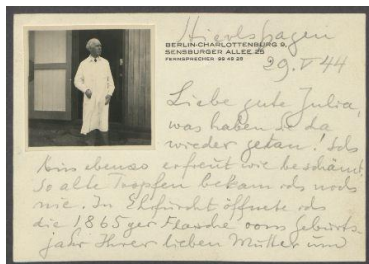 BERLIN-CHARLOTTENBURG 9
SENSBURGER ALLEE 25
FERNSPRECHER 99 49 25
29. V 44
Liebe gute Julia,
was haben Sie da
wieder getan! Ich
bin ebenso erfreut wie beschämt.
So alte Tropfen bekam ich noch
nie. In Ehrfurcht öffnete ich
die 1865ger Flasche vom Geburts-
jahr Ihrer lieben Mutter und